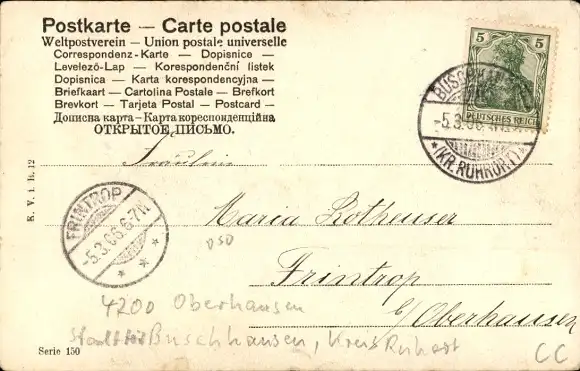 Postkarte — Carte postale
Weltpostverein — Union postale universelle
Correspondenz-Karte — Dopisnice
Levelező-Lap — Korespondenční lístek
Dopisnica — Karta korespondencyjna —
Briefkaart — Cartolina Postale — Brefkort
Brevkort — Tarjeta Postal — Postcard —
Дописна карта — Карта кореспонденційна
ОТКРЫТОЕ ПИСЬМО.
5 5
DEUTSCHES REICH
-5.3.06
*(KR. RUHRORT)*
Fräulein
K. V. i. B. 12
FRINTROP
-5.3.06.6-7N
Maria Rotheuser
DSD
Frintrop
b/Oberhausen
4200 Oberhausen
Buschhausen, Kreis Ruhrort
Serie 150
CC